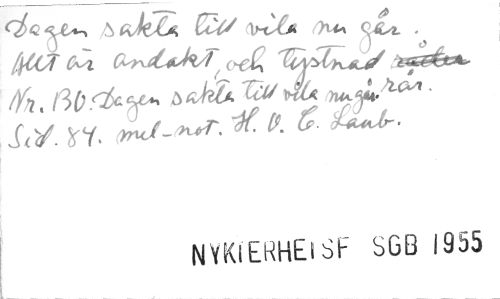 Dagen sakta till vila nu går.
Allt är andakt, och tystnad råder
rår.
Nr. 130. Dagen sakta till vila nu går
Sid. 84. mel-not. H. O. C. Laub.
NYKTERHETSF SGB 1955